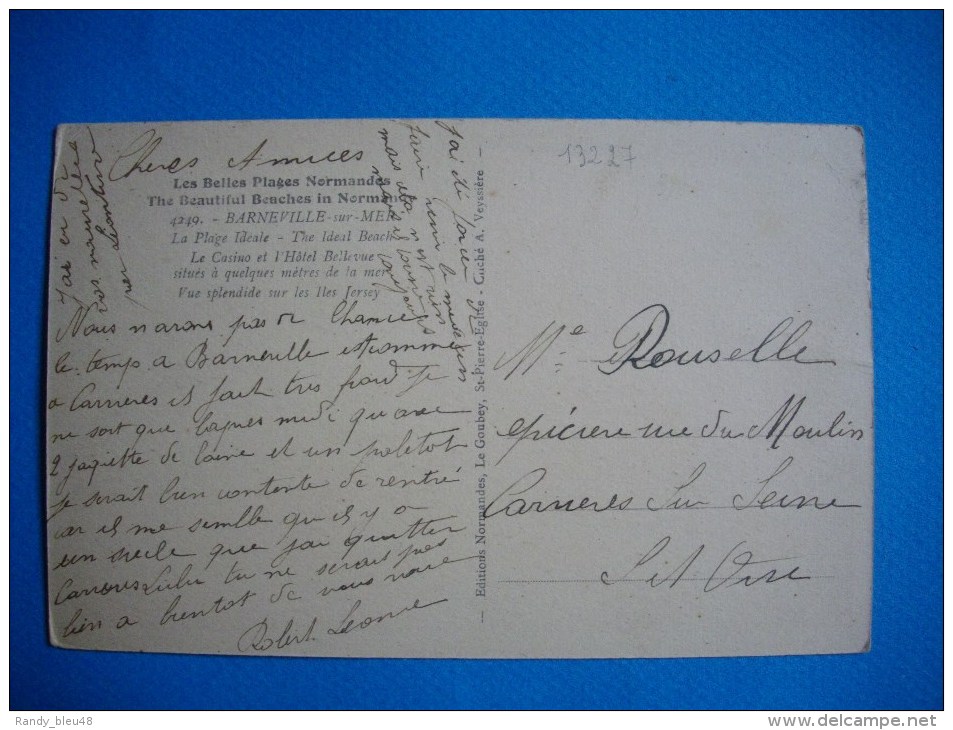 Cheres Amices
Les Belles Plages Normandes
The Beautiful Beaches in Norman
4249. - BARNEVILLE-sur-MER
La Plage Idéale - The Ideal Beach
Le Casino et l'Hôtel Bellevue
situés à quelques mètres de la mer
Vue splendide sur les Iles Jersey
Nous navons pas de Chance
le temps a Barneville est comme
a Carrieres il fait tres froid je
ne sort que lapres midi quavec
2 jaquette de laine et un paletot
je serait bien contente de rentré
car il me semble qu il y a
un siecle que jai quitter
Carrieres Lulu tu ne serait pas
bien a bientot de vous voire
Robert Leone
J'ai eu de
vos nouvelles
par
J'ai été forcer de
faire venir le medecin
mais cela n est rien
mais il toujours
Editions Normandes, Le Goubey, St-Pierre-Eglise - Cliché A. Veyssière -
13227
Me Rouselle
épiciere rue du Moulin
Carrieres Sur Seine
S et Oise
Randy_bleu48
www.delcampe.net